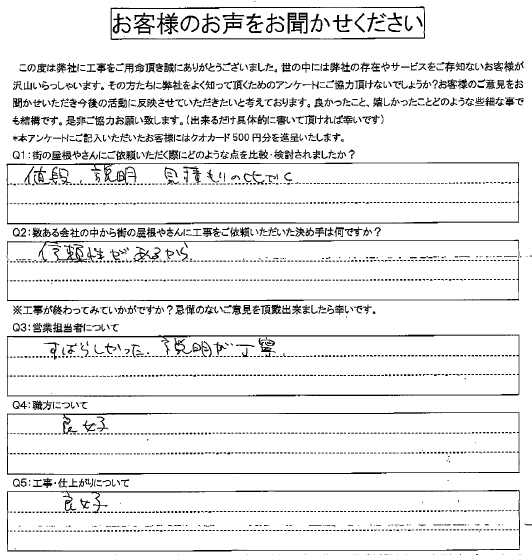 お客様のお声をお聞かせください
この度は弊社に工事をご用命頂き誠にありがとうございました。世の中には弊社の存在やサービスをご存知ないお客様が
沢山いらっしゃいます。その方たちに弊社をよく知って頂くためのアンケートにご協力頂けないでしょうか?お客様のご意見をお
聞かせいただき今後の活動に反映させていただきたいと考えております。良かったこと、嬉しかったことどのような些細な事で
も結構です。是非ご協力お願い致します。(出来るだけ具体的に書いて頂ければ幸いです)
*本アンケートにご記入いただいたお客様にはクオカード500円分を進呈いたします。
Q1:街の屋根やさんにご依頼いただく際にどのような点を比較・検討されましたか?
値段、説明 見積もりの比かく
Q2:数ある会社の中から街の屋根やさんに工事をご依頼いただいた決め手は何ですか?
信頼性があるから
※工事が終わってみていかがですか?忌憚のないご意見を頂戴出来ましたら幸いです。
Q3:営業担当者について
すばらしかった、説明が丁寧、
Q4:職方について
良好
Q5:工事・仕上がりについて
良好